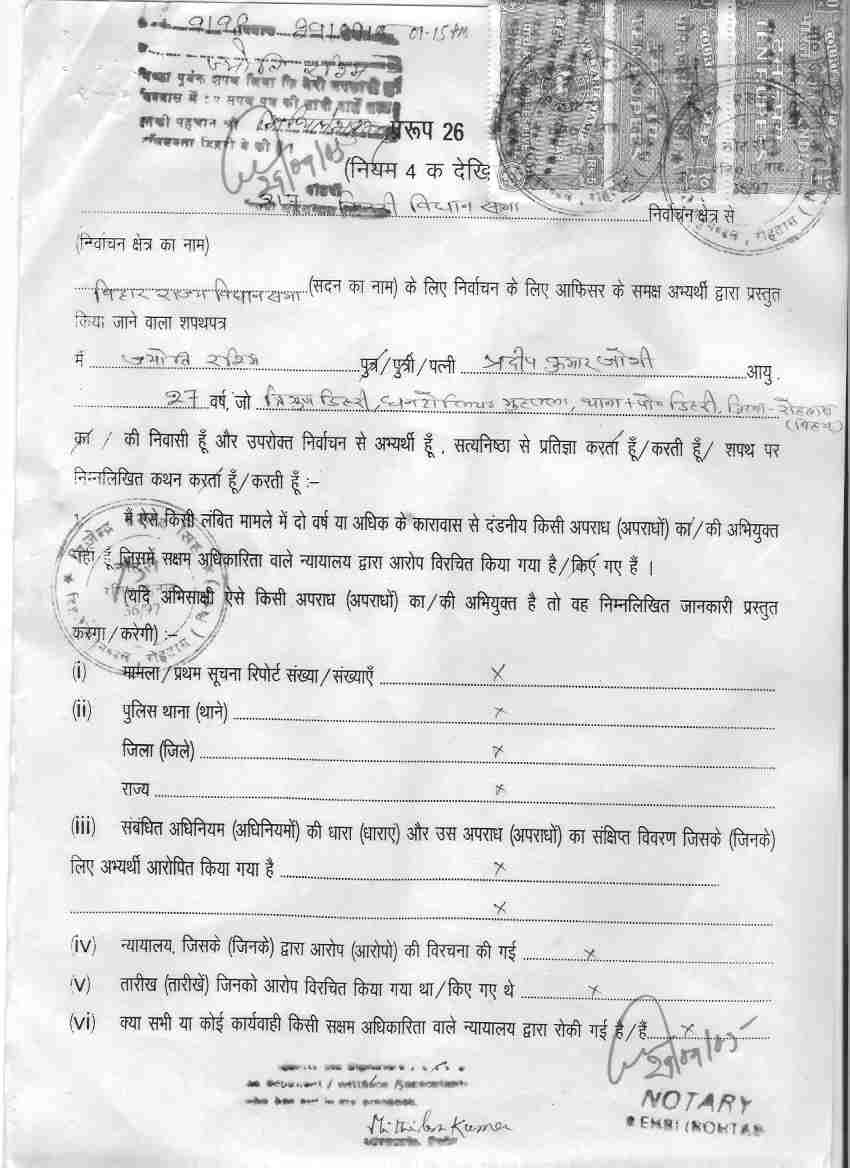 01-15 PM
ज्योति रश्मि
प्ररूप 26
(नियम 4 क देखि
29/09/05
डिहरी विधान सभा निर्वाचन क्षेत्र से
(निर्वाचन क्षेत्र का नाम)
बिहार राज्य विधान सभा (सदन का नाम) के लिए निर्वाचन के लिए आफिसर के समक्ष अभ्यर्थी द्वारा प्रस्तुत
किया जाने वाला शपथपत्र
मैं ज्योति रश्मि पुत्र/पुत्री/पत्नी प्रदीप कुमार जोशी आयु
27 वर्ष, जो डिहरी, थाना+पो० डिहरी, जिला- रोहतास
(बिहार)
का / की निवासी हूँ और उपरोक्त निर्वाचन से अभ्यर्थी हूँ , सत्यनिष्ठा से प्रतिज्ञा करता हूँ/करती हूँ/ शपथ पर
निम्नलिखित कथन करता हूँ/करती हूँ :–
मैं ऐसे किसी लंबित मामले में दो वर्ष या अधिक के कारावास से दंडनीय किसी अपराध (अपराधों) का/की अभियुक्त
नहीं हूँ, जिसमें सक्षम अधिकारिता वाले न्यायालय द्वारा आरोप विरचित किया गया है/किए गए हैं ।
(यदि अभिसाक्षी ऐसे किसी अपराध (अपराधों) का/की अभियुक्त है तो वह निम्नलिखित जानकारी प्रस्तुत
करेगा/करेगी) :–
(i) मामला/प्रथम सूचना रिपोर्ट संख्या/संख्याएँ ×
(ii) पुलिस थाना (थाने) ×
जिला (जिले) ×
राज्य ×
(iii) संबंधित अधिनियम (अधिनियमों) की धारा (धाराएं) और उस अपराध (अपराधों) का संक्षिप्त विवरण जिसके (जिनके)
लिए अभ्यर्थी आरोपित किया गया है ×
×
(iv) न्यायालय, जिसके (जिनके) द्वारा आरोप (आरोपो) की विरचना की गई ×
(v) तारीख (तारीखें) जिनको आरोप विरचित किया गया था/किए गए थे ×
(vi) क्या सभी या कोई कार्यवाही किसी सक्षम अधिकारिता वाले न्यायालय द्वारा रोकी गई है/हैं ×
29/09/05
NOTARY
Mithilesh Kumar